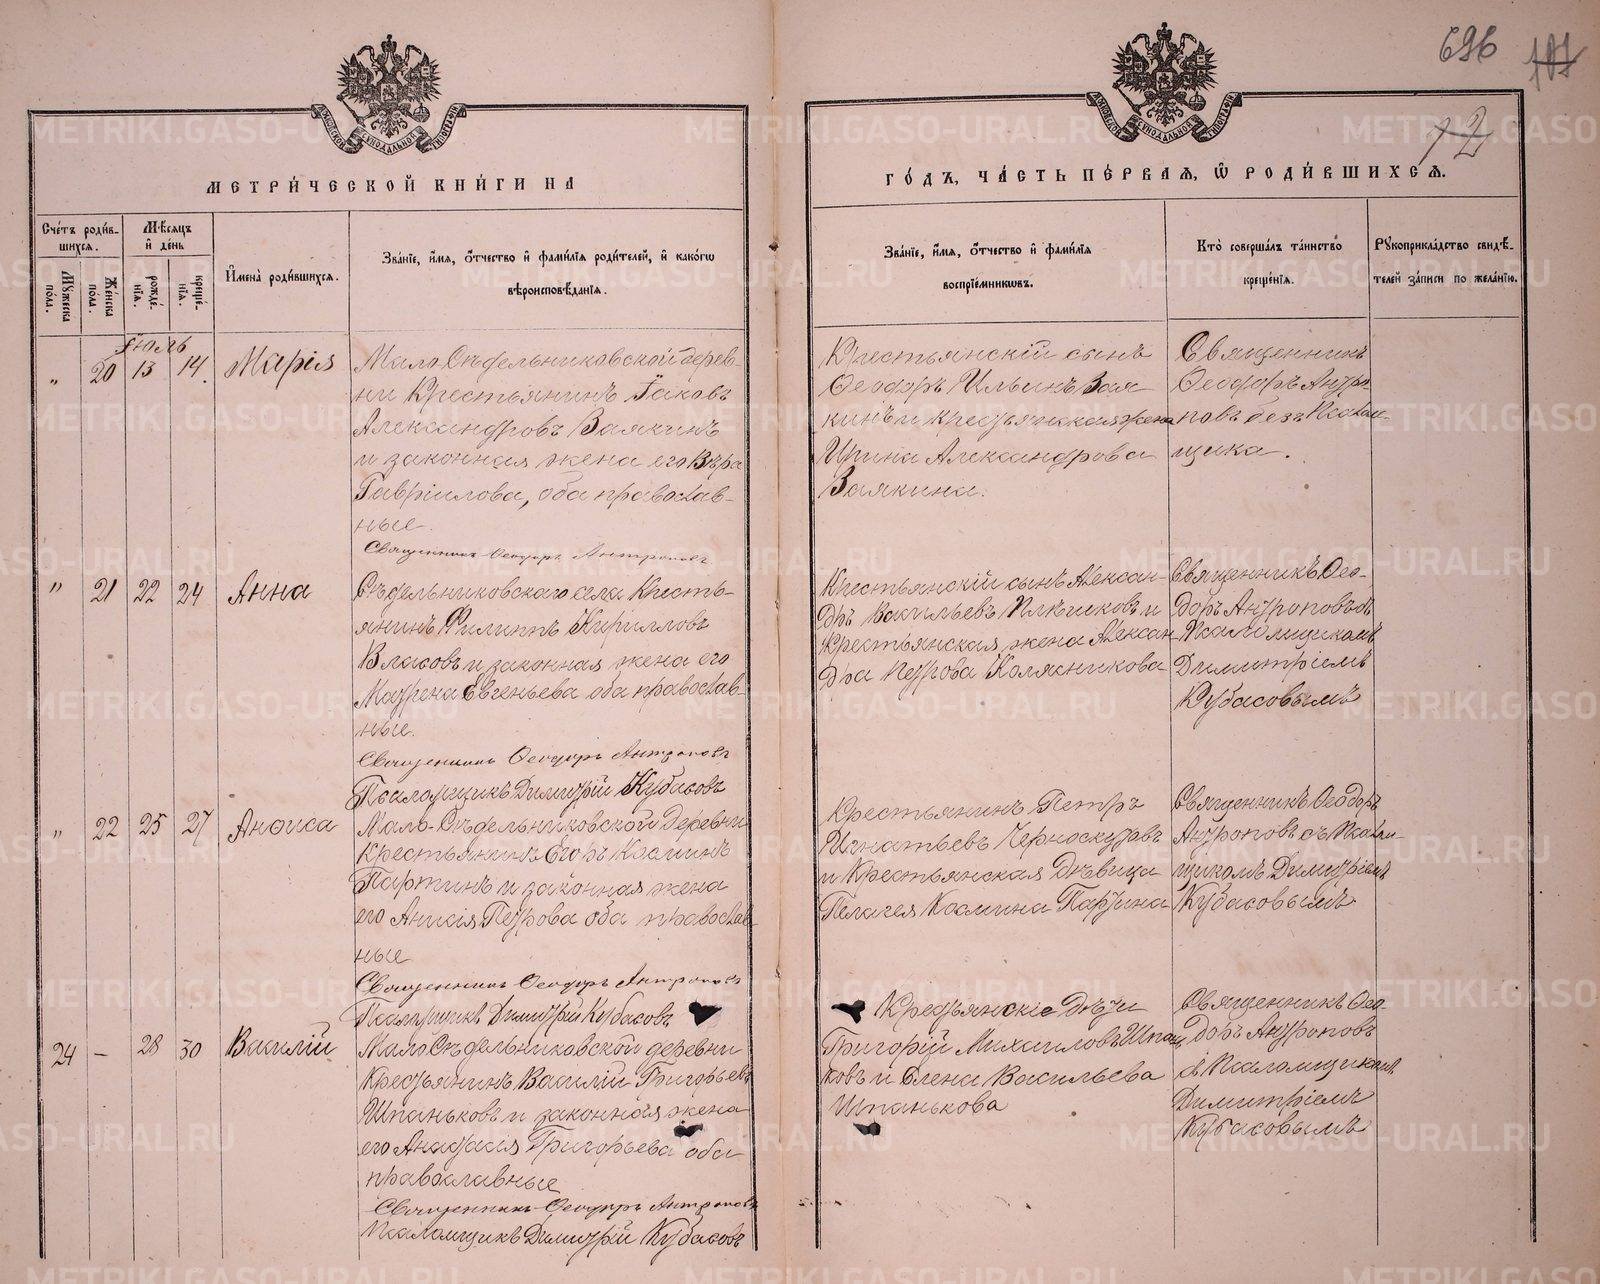 696 101
72
МЕТРИ́ЧЕСКОЙ КНИ́ГИ НА
ГО́ДЪ, ЧА́СТЬ ПЕ́РВАЯ, Ѡ҆ РОДИ́ВШИХСЯ.
Сче́тъ роди́в-
шихся.
Му́жеска пола.
Же́нска пола.
Мѣ́сяцъ и҆ де́нь
рожде́-
нїя.
креще́-
нїя.
И҆мена̀ роди́вшихся.
Зва́нїе, и҆́мя, ѻ҆́тчество и҆ фами́лїя роди́телей, и҆ како́гѡ
вѣроисповѣ́данїя.
Зва́нїе, и҆́мя, ѻ҆́тчество и҆ фами́лїя
воспрїе́мникѡвъ.
Кто̀ соверша́лъ та́инство
креще́нїя.
Рꙋкоприкла́дство свидѣ́-
телей за́писи по жела́нїю.
Іюль
" 20 13 14. Марія
Мало Сѣдельниковской дерев-
ни Крестьянинъ Іаковъ
Александровъ Заякинъ
и законная жена его Вѣра
Гавріилова, оба православ-
ные.
Священникъ Ѳеодоръ Антроповъ
Крестьянскій сынъ
Ѳеодоръ Ильинъ Зая
кинъ и крестьянская жена
Ирина Александрова
Заякина.
Священникъ
Ѳеодоръ Антро
повъ безъ Псалом
щика.
" 21 22 24 Анна
Сѣдельниковскаго села Кресть-
янинъ Филиппъ Кирилловъ
Власовъ и законная жена его
Матрена Евгеньева оба православ-
ные.
Священникъ Ѳеодоръ Антроповъ
Псаломщикъ Димитрій Кубасовъ
Крестьянскій сынъ Алексан-
дръ Васильевъ Плѣшковъ и
Крестьянская жена Алексан
дра Петрова Колясникова
Священникъ Ѳео-
доръ Антроповъ съ
Псаломщикомъ
Димитріемъ
Кубасовымъ
" 22 25 27 Анѳиса
Мало-Сѣдельниковской Деревни
Крестьянинъ Егоръ Косминъ
Партинъ и законная жена
его Анисія Петрова оба православ
ные
Священникъ Ѳеодоръ Антроповъ
Псаломщикъ Димитрій Кубасовъ
Крестьянинъ Петръ
Игнатьевъ Черноскутовъ
и Крестьянская Дѣвица
Пелагея Космина Партина
Священникъ Ѳеодоръ
Антроповъ съ Псалом-
щикомъ Димитріемъ
Кубасовымъ
24 — 28 30 Василій
Мало Сѣдельниковской деревни
Крестьянинъ Василій Григорьевъ
Шпаньковъ и законная жена
его Анастасія Григорьева оба
православные
Священникъ Ѳеодоръ Антроповъ
Псаломщикъ Димитрій Кубасовъ
Крестьянскіе Дѣти
Григорій Михаиловъ Шпань
ковъ и Елена Васильева
Шпанькова
Священникъ Ѳео
доръ Антроповъ
съ Псаломщикомъ
Димитріемъ
Кубасовымъ
METRIKI.GASO-URAL.RU